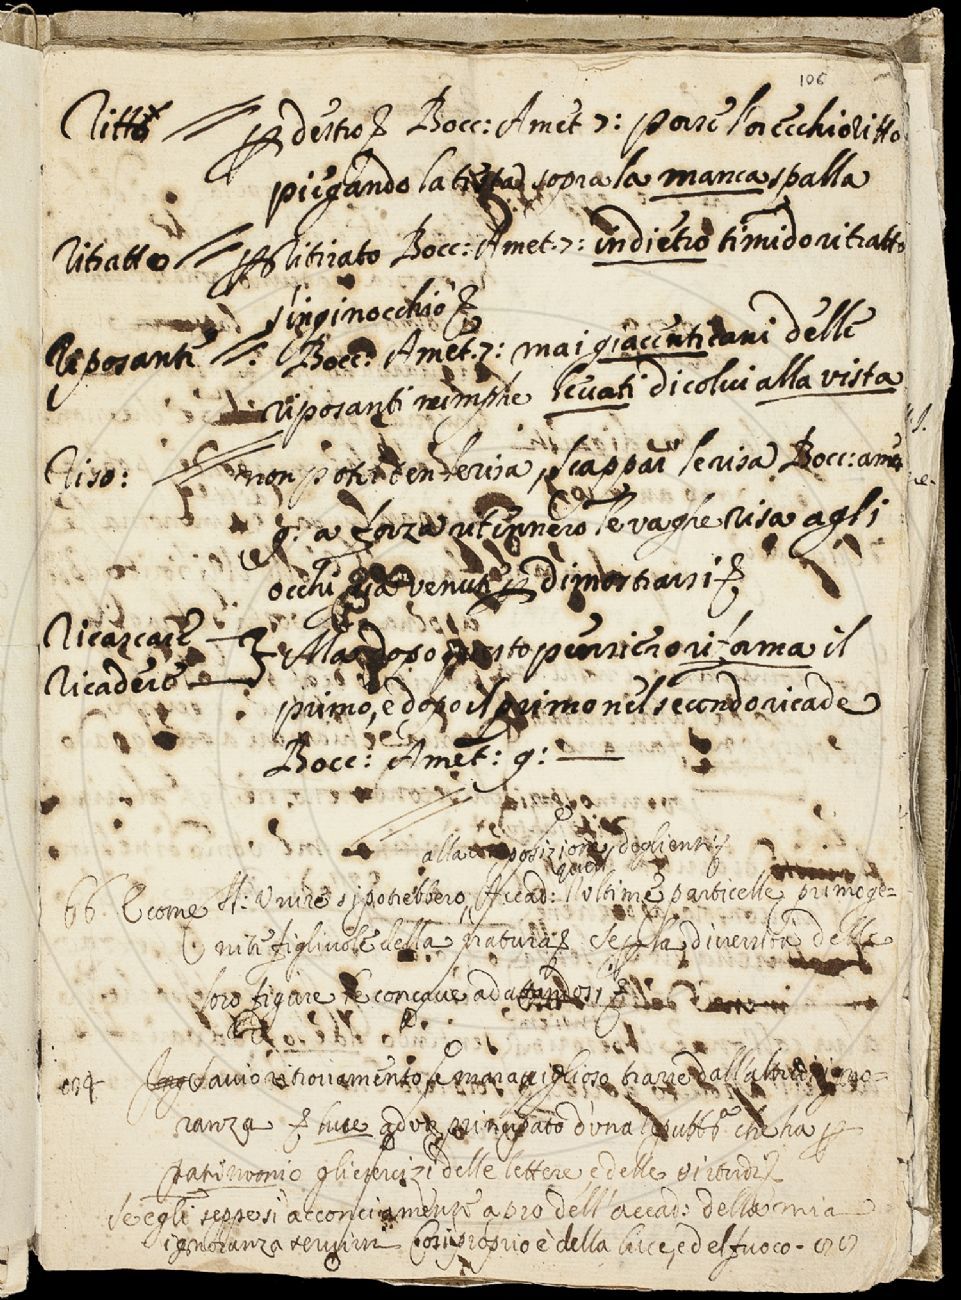 106
Ritto p destro Bocc: Amet 7: porse l'orecchio ritto
piegando la testa sopra la manca spalla
Ritratto p ritirato Bocc: Amet. 7: indietro timido ritratto
s'inginocchiò
Riposanti Bocc: Amet. 7: mai giacenti cani delle
riposanti nimphe levati di colui alla vista
Riso: non poter tener le risa, scappar le risa Bocc: amet
9: a forza ritinnero le vaghe risa agli
occhi già venute p dimostrarsi
Ricascare
Ricadere Ma dopo questo pensiero riforma il
primo, e dopo il primo nel secondo ricade
Bocc: Amet: 9:
alla posizione degl'enti
66 E come unire si potrebbero, Accad: l'ultime particelle primoge=
nite figliuole della natura se la diversità delle
loro figure e concave adattandosi
savio ritrovamento, e maraviglioso trarre dall'altrui igno=
ranza luce ad principato d'una che ha p
patrimonio gli esercizi delle lettere e delle virtudi
Se egli seppesi acconciamente a pro dell'accad: della mia
ignoranza servire Così proprio è della luce, e del fuoco